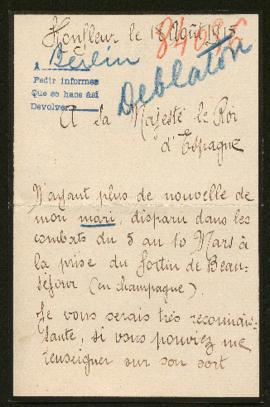 Honfleur le 18 Août 1915
84086
A Berlin
Pedir informes
Que se hace así
Devolver
Deblaton
A Sa Majesté le Roi
d'Espagne
N'ayant plus de nouvelle de
mon mari, disparu dans les
combats du 5 au 10 Mars à
la prise du Fortin de Beau-
séjour (en champagne)
Je vous serais très reconnais-
sante, si vous pouviez me
renseigner sur son sort